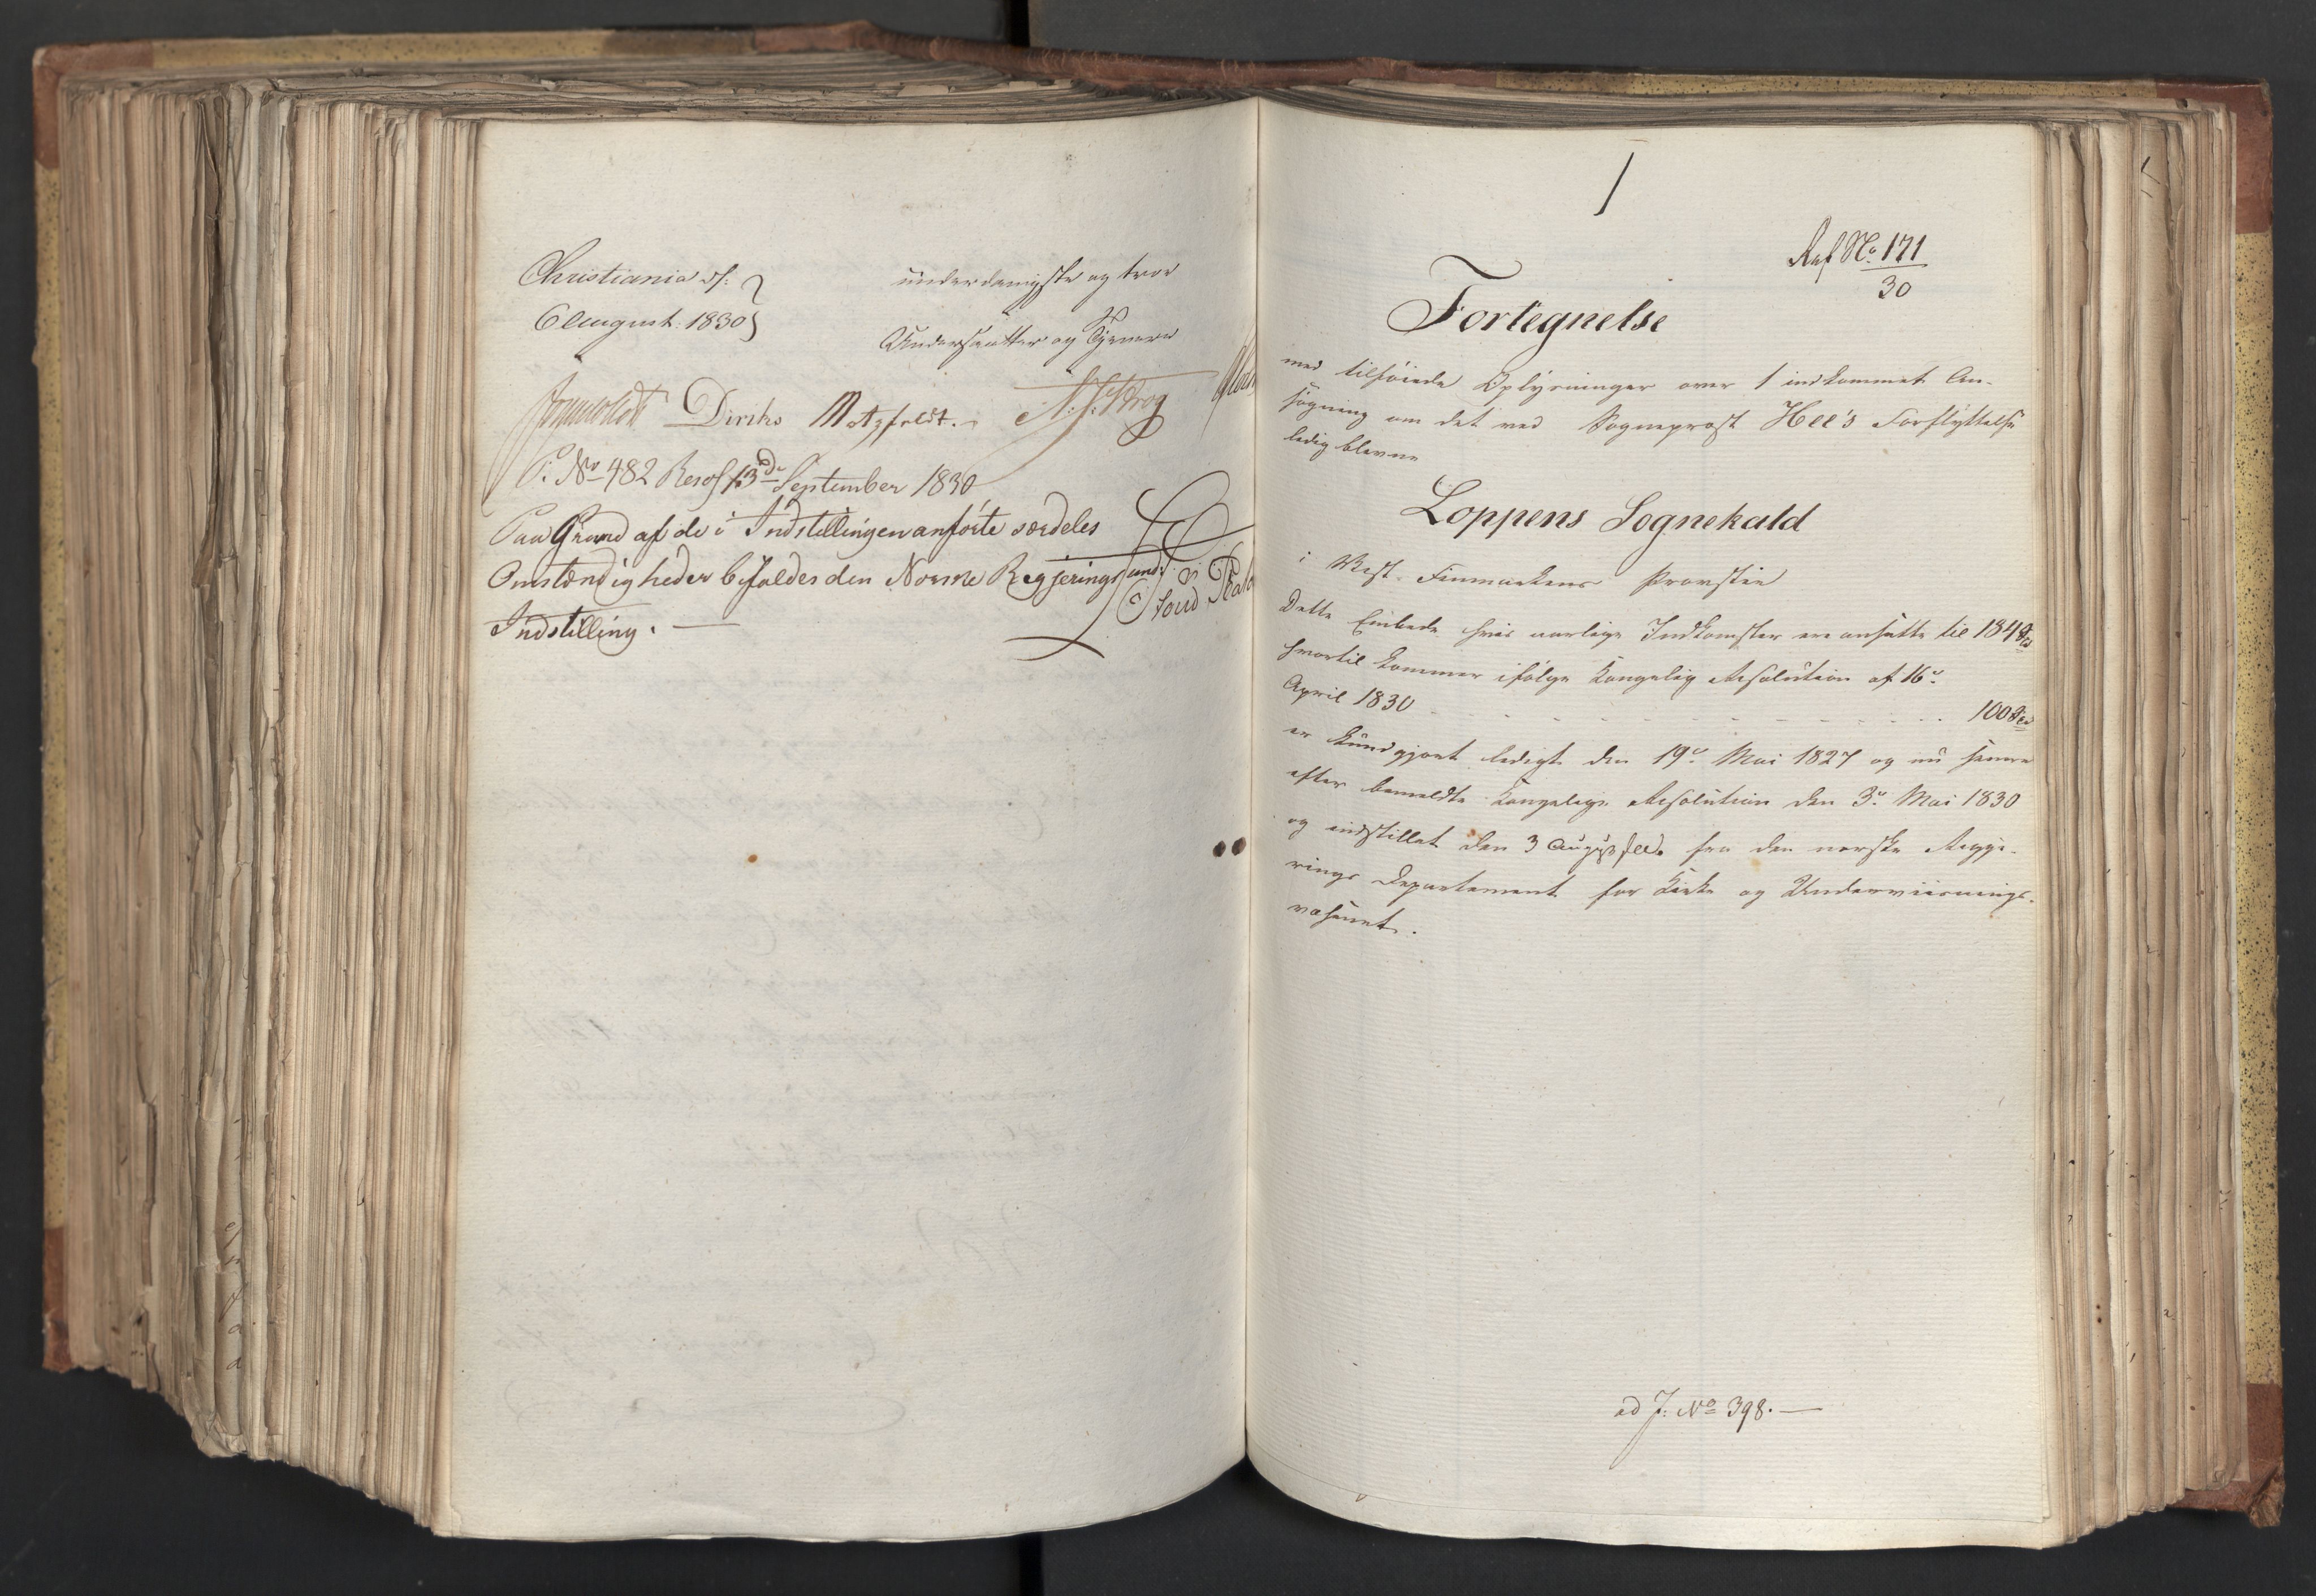 Christiania d:
6 August: 1830
underdanigste og troe
Undersaatter og Tjenere
Diriks Motzfeldt. N: J: Krog
P: No 482 Resol: 13de September 1830
Paa Grund af de i Indstillingen anførte særdeles
Omstændigheder bifaldes den Norske Regjerings und:
Indstilling. —
1
Ref No. 171
30
Fortegnelse
med tilføiede Oplysninger over 1 indkommet An-
søgning om det ved Sogneprest Hee's Forflyttelse
ledig blevne
Loppens Sognekald
i Vest-Finmarkens Provstie
Dette Embede hvis aarlige Indkomster ere ansatte til 184 Spd
hvortil kommer ifølge Kongelig Resolution af 16de
April 1830 100 Spd
er kundgjort ledigt den 19de Mai 1827 og nu senere
efter bemeldte Kongelige Resolution den 3de Mai 1830
og indstillet den 3 August fra den norske Regje-
rings Departement for Kirke og Underviisnings-
væsenet.
ad J: No 398. —